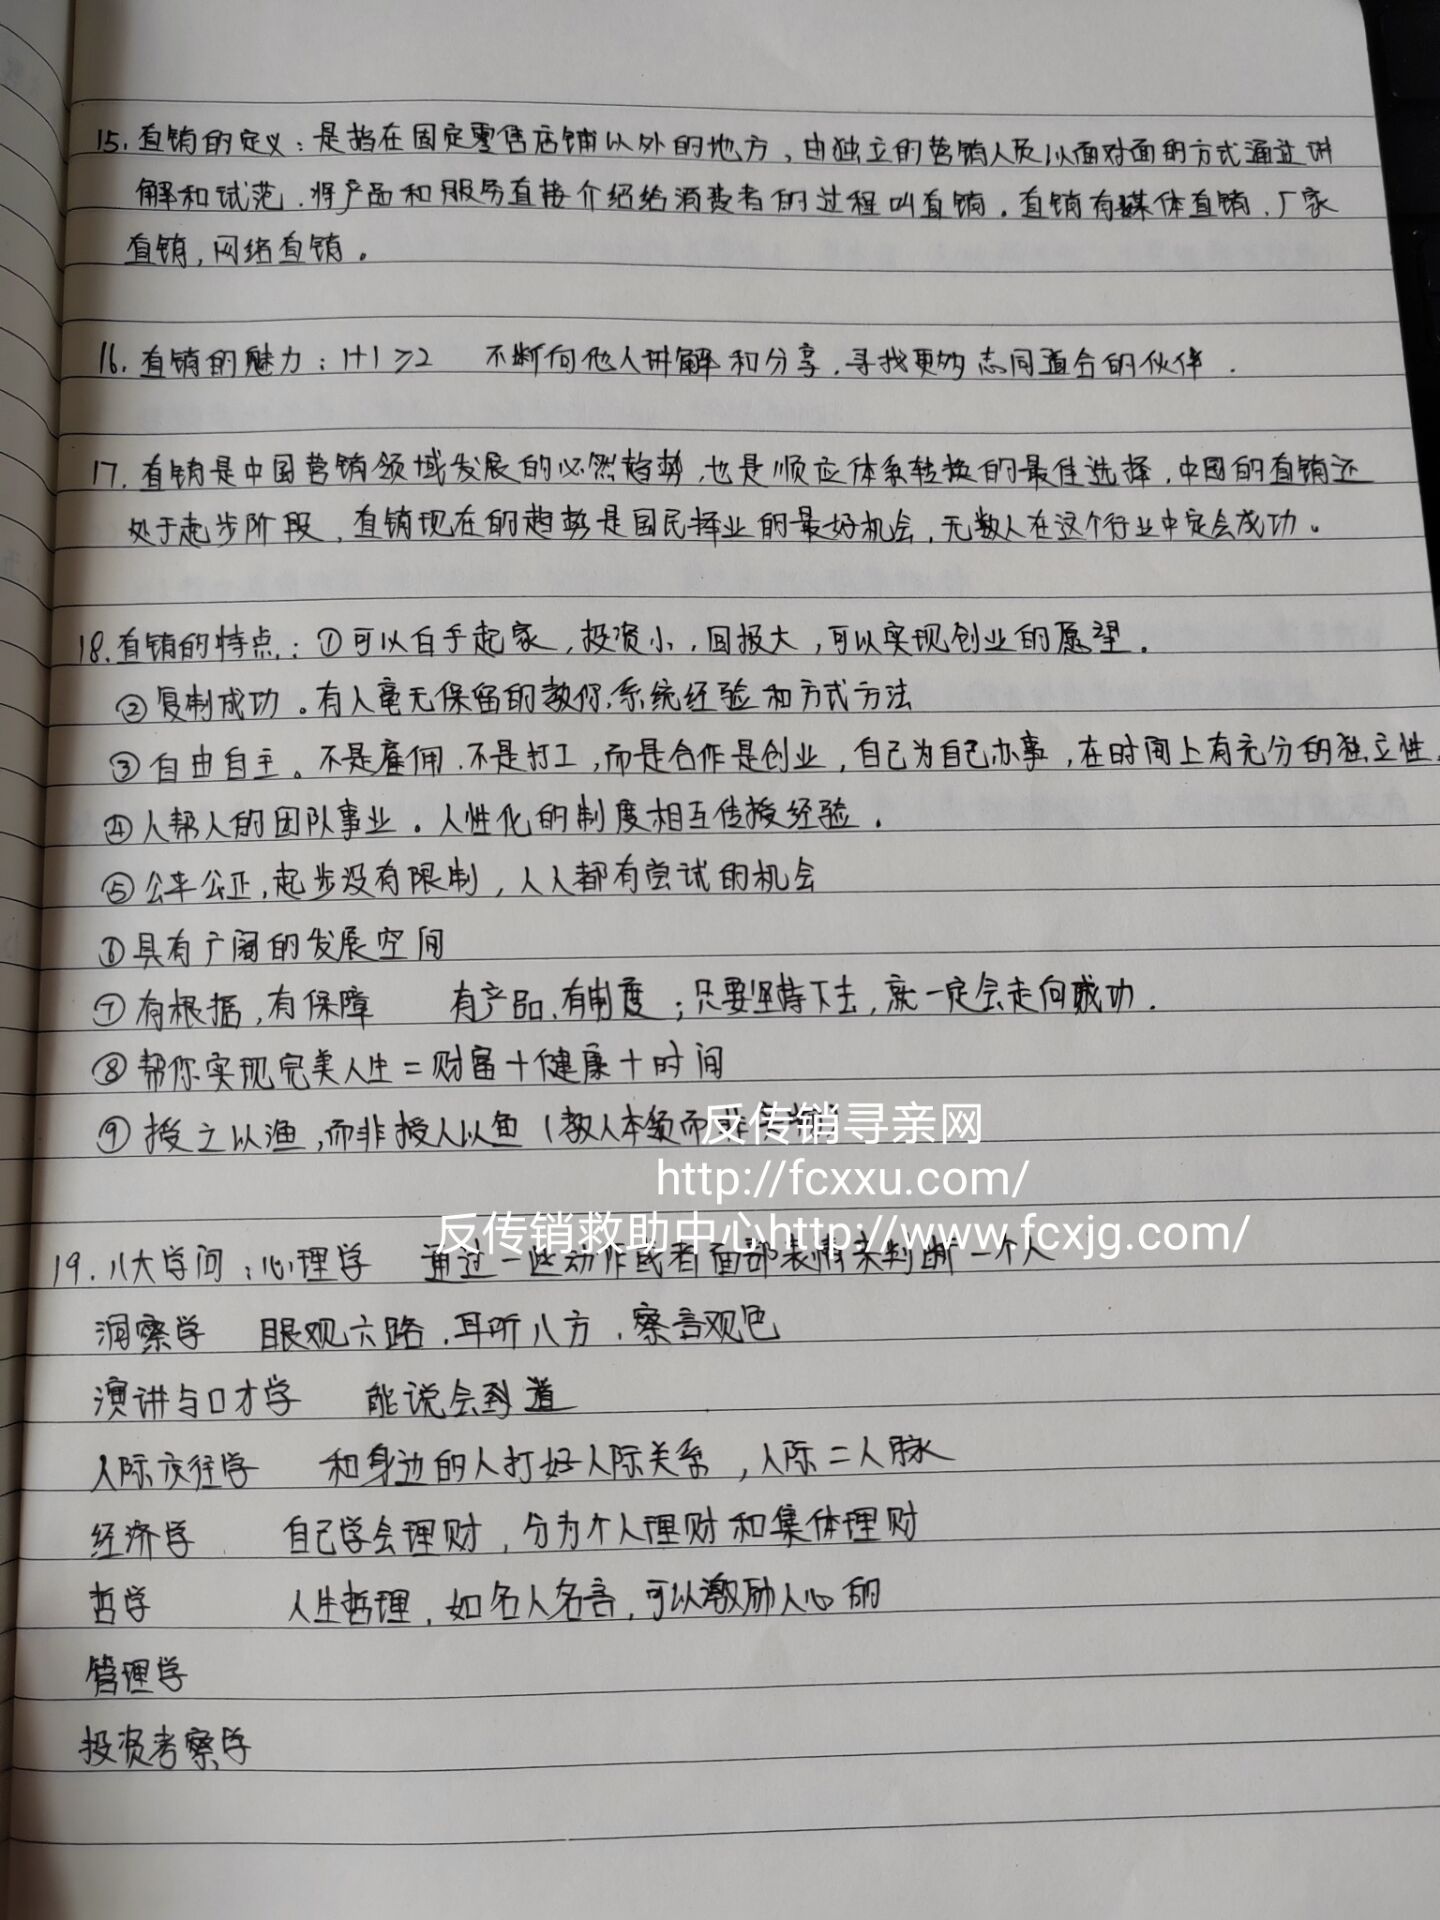 15. 直销的定义：是指在固定零售店铺以外的地方，由独立的营销人员以面对面的方式通过讲
解和试范，将产品和服务直接介绍给消费者的过程叫直销。直销有媒体直销，厂家
直销，网络直销。
16. 直销的魅力：1+1≥2 不断向他人讲解和分享，寻找更多志同道合的伙伴.
17. 直销是中国营销领域发展的必然趋势，也是顺应体系转换的最佳选择，中国的直销还
处于起步阶段，直销现在的趋势是国民择业的最好机会，无数人在这个行业中定会成功。
18. 直销的特点：①可以白手起家，投资小，回报大，可以实现创业的愿望.
②复制成功。有人毫无保留的教你，系统经验和方式方法
③自由自主。不是雇佣，不是打工，而是合作是创业，自己为自己办事，在时间上有充分的独立性.
④人帮人的团队事业。人性化的制度相互传授经验.
⑤公平公正，起步没有限制，人人都有尝试的机会
⑥具有广阔的发展空间
⑦有根据，有保障 有产品，有制度；只要坚持下去，就一定会走向成功.
⑧帮你实现完美人生=财富+健康+时间
⑨授之以渔，而非授人以鱼（教人本领而非
反传销寻亲网
http://fcxxu.com/
反传销救助中心http://www.fcxjg.com/
19. 八大学问：心理学 通过一些动作或者面部表情来判断一个人
洞察学 眼观六路，耳听八方，察言观色
演讲与口才学 能说会到道
人际交往学 和身边的人打好人际关系，人际=人脉
经济学 自己学会理财，分为个人理财和集体理财
哲学 人生哲理，如名人名言，可以激励人心的
管理学
投资考察学